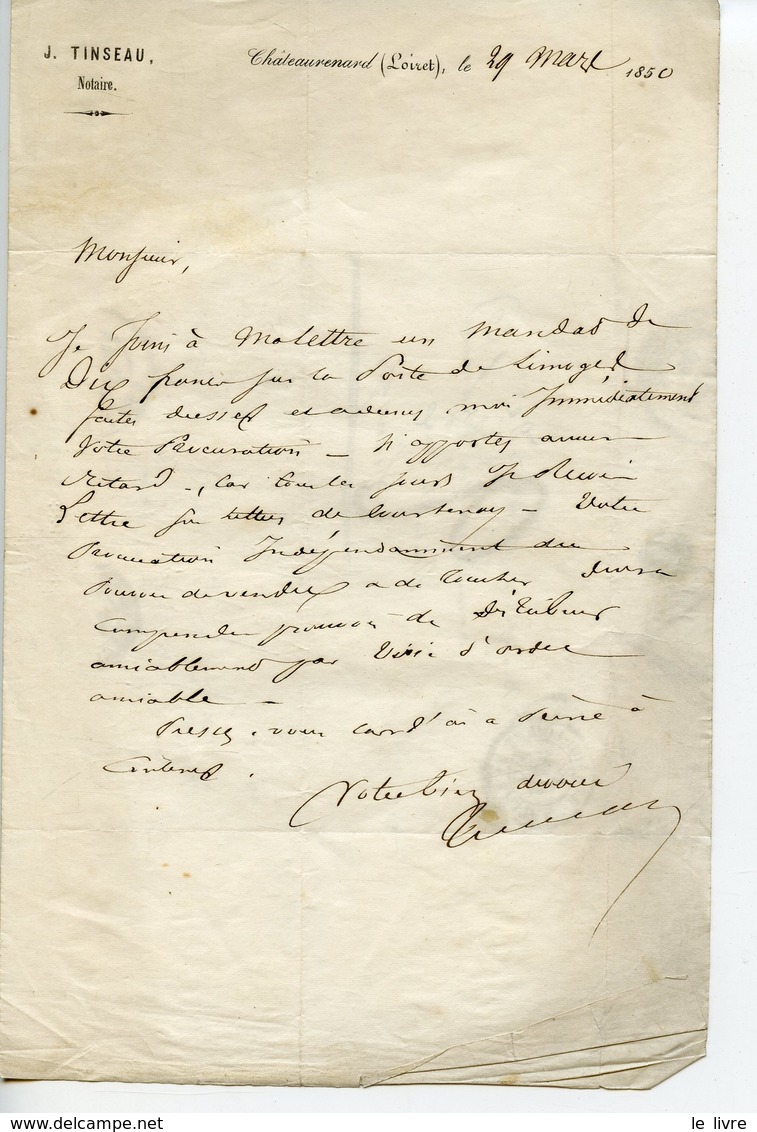 J. TINSEAU,
Notaire.
Châteaurenard (Loiret), le 29 Mars 1850
Monsieur,
Je Joins à Ma lettre un Mandat de
Dix francs sur la Poste de Limoges
faites dresser et adressez moi Immédiatement
Votre Procuration – N'apportez aucun
Retard –, Car tous les jours Je Reçois
Lettre sur lettres de Courtenay – Votre
Procuration Indépendamment du
Pouvoir de vendre et de Toucher devra
Comprendre pouvoir de Distribuer
amiablement par Voie d'ordre
amiable –
Pressez-vous car
Votre bien dévoué
Tinseau
le livre